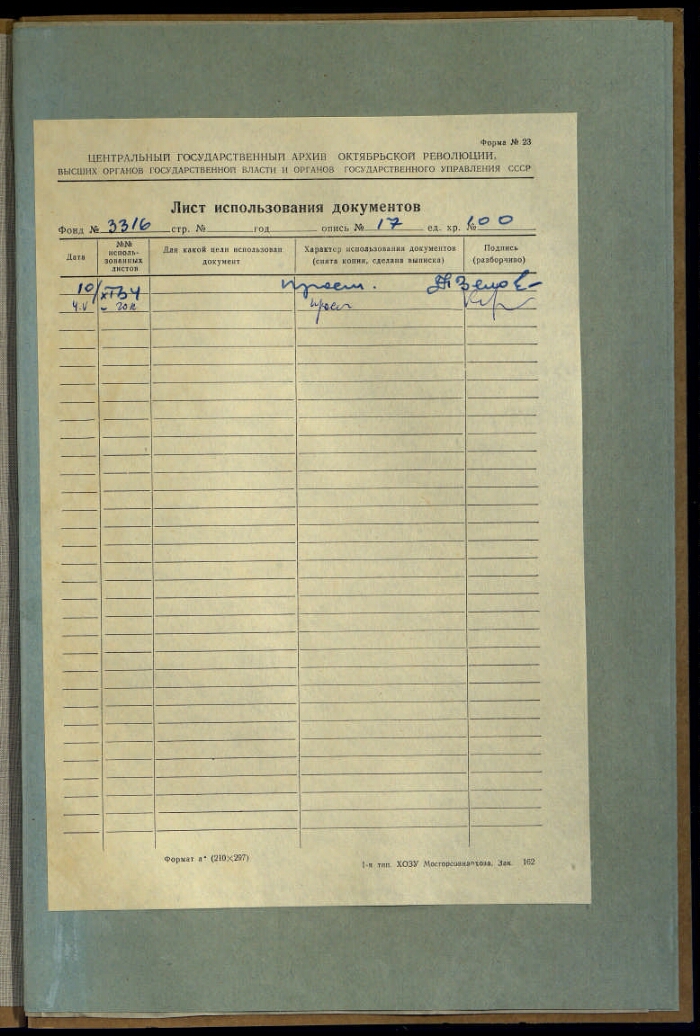 Форма № 23
ЦЕНТРАЛЬНЫЙ ГОСУДАРСТВЕННЫЙ АРХИВ ОКТЯБРЬСКОЙ РЕВОЛЮЦИИ,
ВЫСШИХ ОРГАНОВ ГОСУДАРСТВЕННОЙ ВЛАСТИ И ОРГАНОВ ГОСУДАРСТВЕННОГО УПРАВЛЕНИЯ СССР
Лист использования документов
Фонд № 3316 стр. № год опись № 17 ед. хр. № 100
Дата
№№ исполь-
зованных
листов
Для какой цели использован
документ
Характер использования документов
(снята копия, сделана выписка)
Подпись
(разборчиво)
10/XI
4.V
Формат а⁴ (210×297)
1-я тип. ХОЗУ Зак. 162